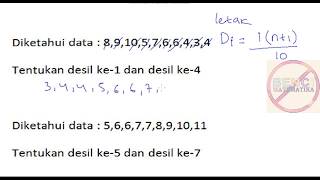 letak
Diketahui data : 8,9,10,5,7,6,6,4,3,4
Di = i(n+1)/10
Tentukan desil ke-1 dan desil ke-4
3,4,4,5,6,6,7,
MATEMATIKA
Diketahui data : 5,6,6,7,7,8,9,10,11
Tentukan desil ke-5 dan desil ke-7